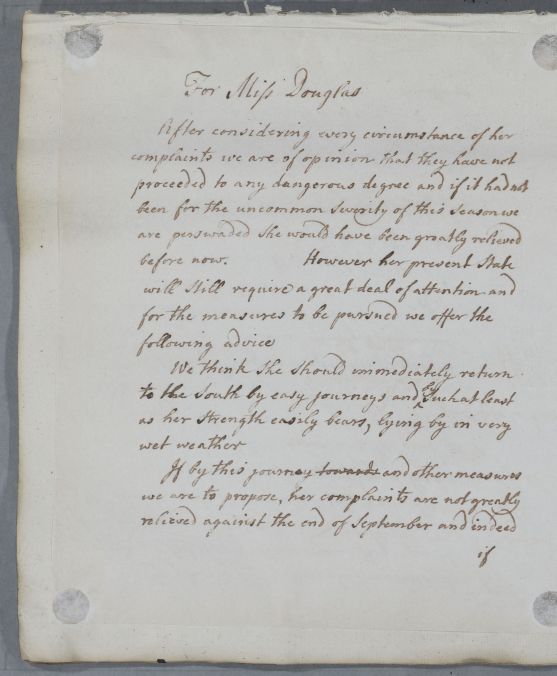 For Miss Douglas
After considering every circumstance of her
complaints we are of opinion that they have not
proceeded to any dangerous degree and if it had not
been for the uncommon Severity of this Season we
are perswaded She would have been greatly relieved
before now. However her present State
will Still require a great deal of attention and
for the measures to be pursued we offer the
following advice
We think She Should immediately return
to the South by easy journeys and by Such at least
as her Strength easily bears, lying by in very
wet weather
If by this journey towards and other measures
we are to propose, her complaints are not greatly
relieved against the end of September and indeed
if